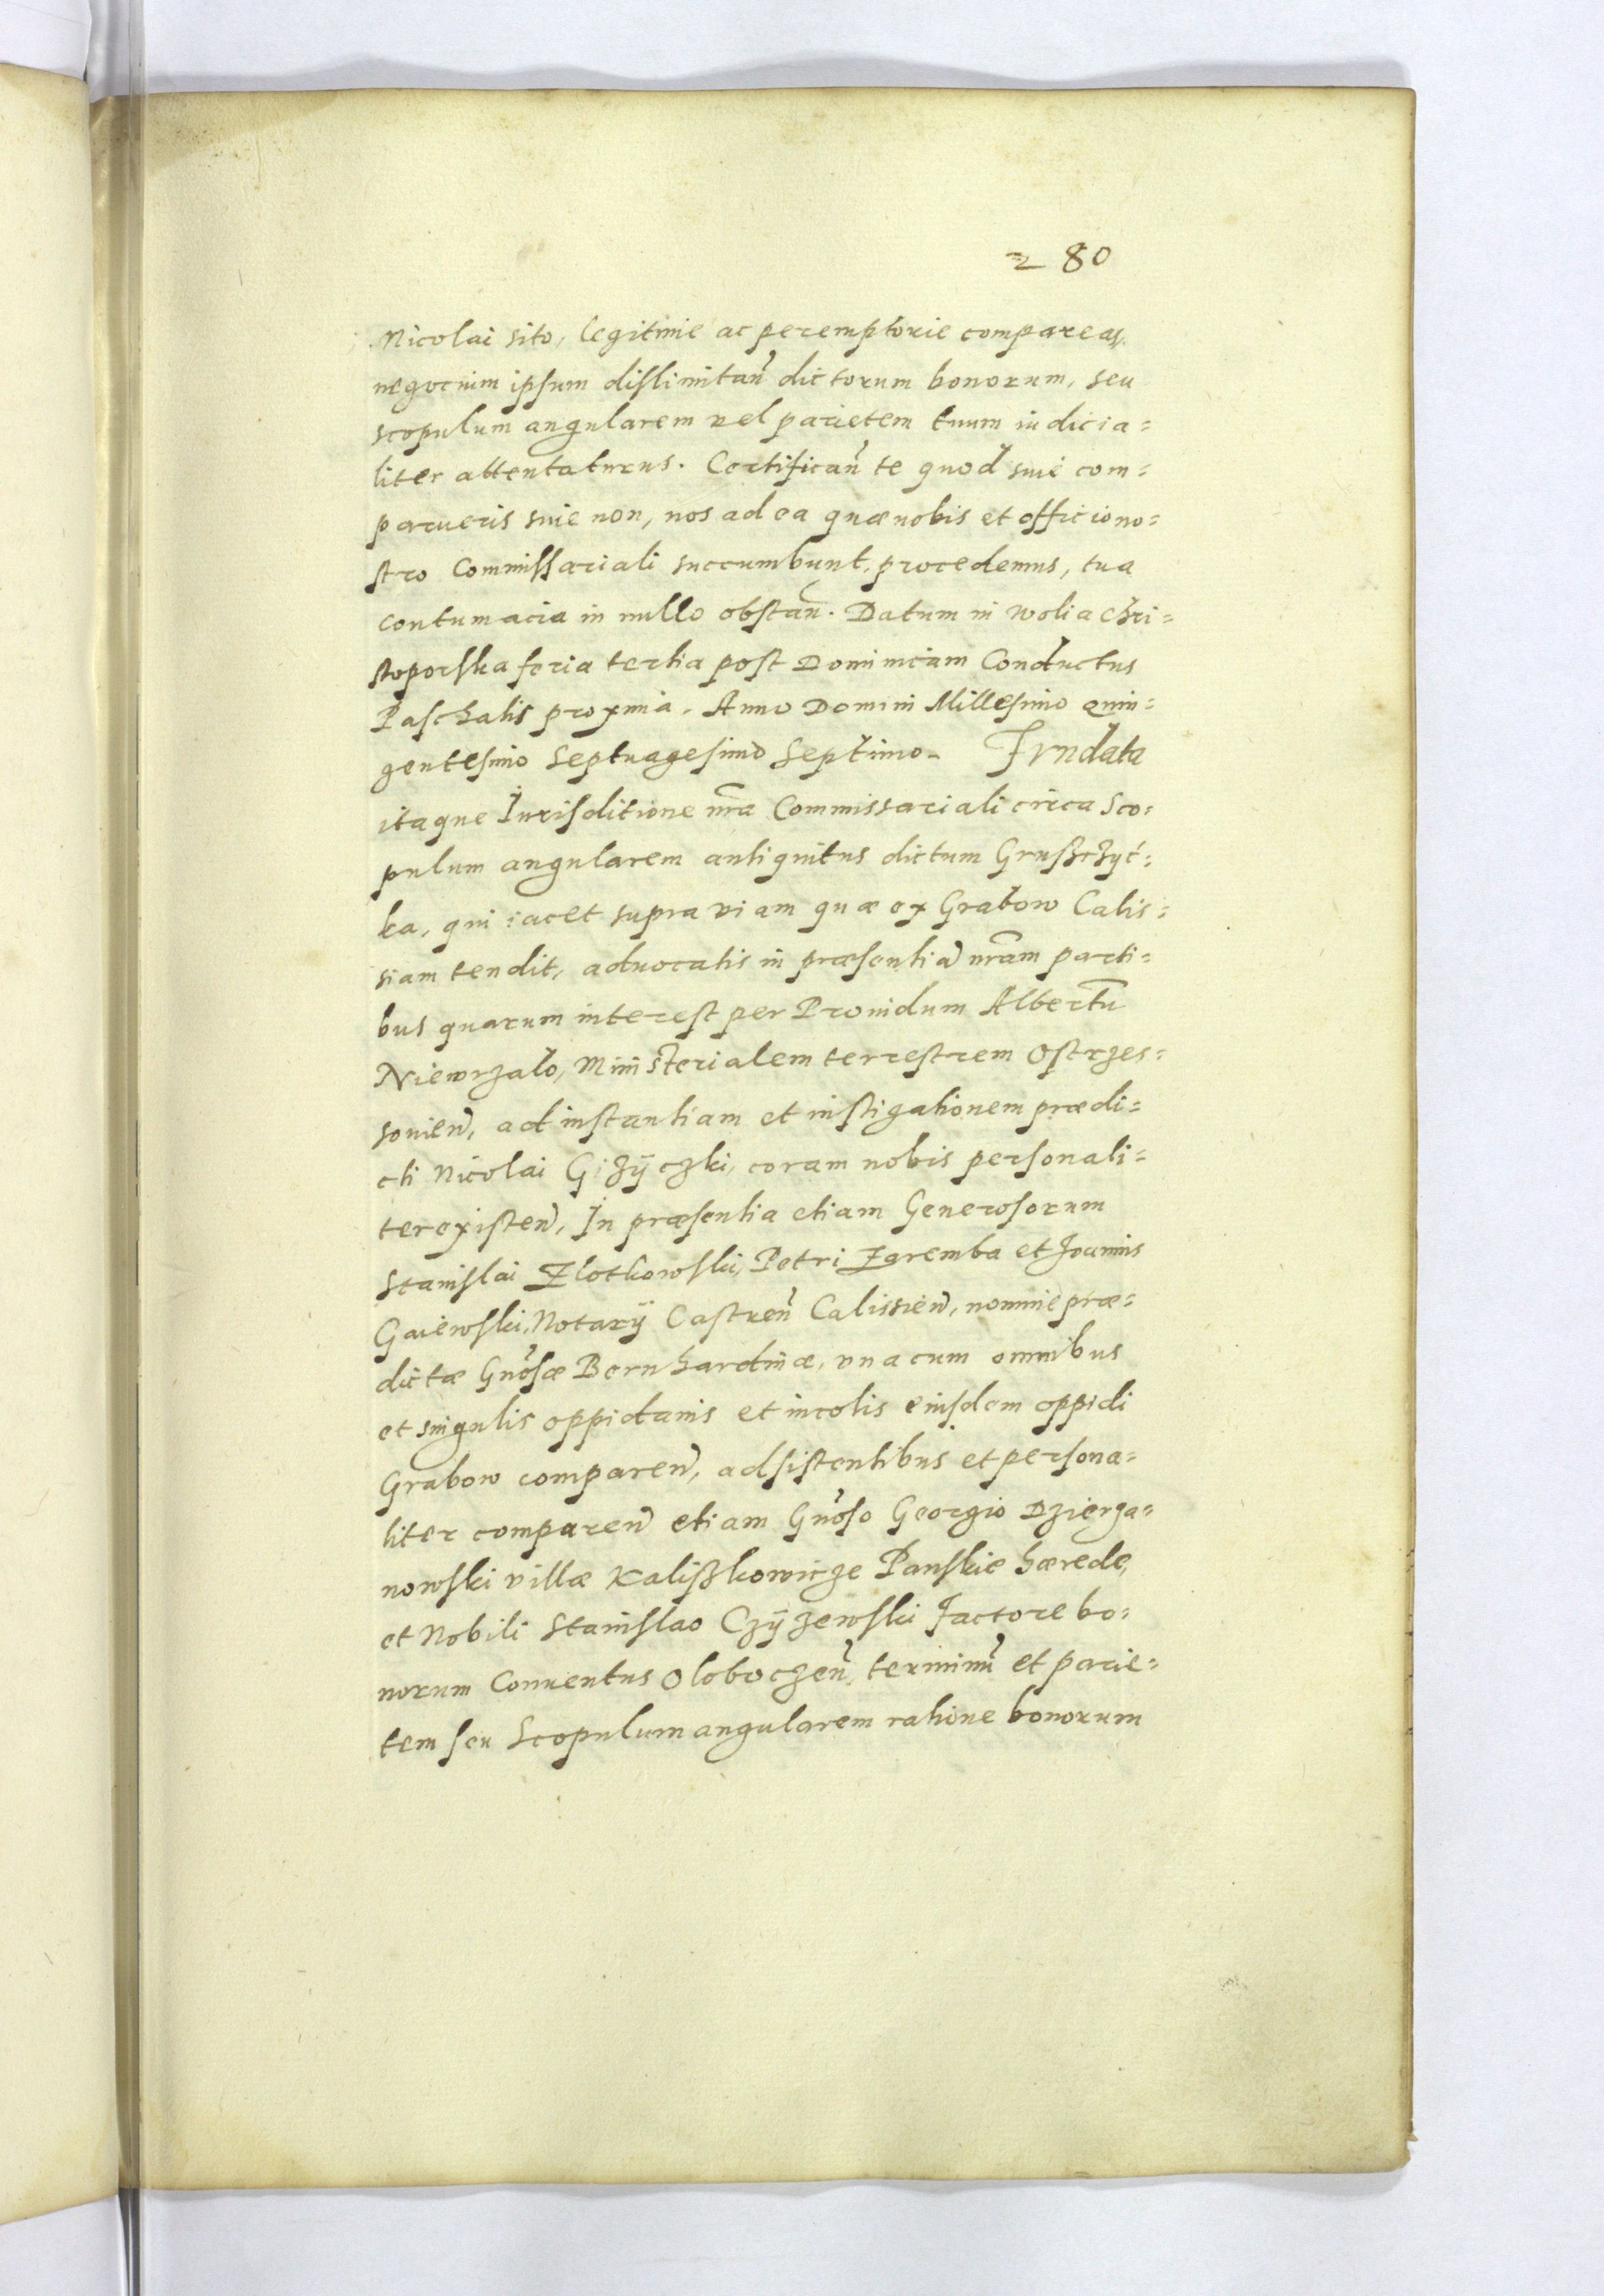 280
Nicolai sito, legitime ac peremptorie compareas,
negocium ipsum dislimitan̄ dictorum bonorum, seu
scopulum angularem vel parietem tuum iudicia=
liter attentaturus. Certifican̄ te quod siue com=
parueris siue non, nos ad ea quæ nobis et officio no=
stro Commissariali succumbunt, procedemus, tua
contumacia in nullo obstan̄. Datum in Wolia Chri=
stoporska feria tertia post Dominicam Conductus
Paschalis proxima. Anno Domini Millesimo Quin=
gentesimo Septuagesimo Septimo. Fvndata
itaque Iurisditione nr̄a Commissariali circa Sco=
pulum angularem antiquitus dictum Grusczyć=
ka, qui iacet supra viam quæ ex Grabow Calis=
siam tendit, aduocatis in præsentiā nr̄am parti=
bus quarum interest per Prouidum Albertū
Niewrzalo, Ministerialem terrestrem Ostrzes=
souien̄, ad instantiam et instigationem prædi=
cti Nicolai Gizÿczki, coram nobis personali=
ter existen̄, In præsentia etiam Generosorum
Stanislai Zlotkowski, Petri Zaremba et Joannis
Gaiewski, Notarÿ Castren̄ Calissien̄, nomine præ=
dictæ Gn̄osæ Bernhardinæ, vna cum omnibus
et singulis oppidanis et incolis eiusdem oppidi
Grabow comparen̄, adsistentibus et persona=
liter comparen̄ etiam Gn̄oso Georgio Dzierza=
nowski villæ Kalißkowicze Panskie hærede,
et Nobili Stanislao Czÿzewski factore bo=
norum Conuentus Oloboczen̄, terminū et parie=
tem seu Scopulum angularem ratione bonorum